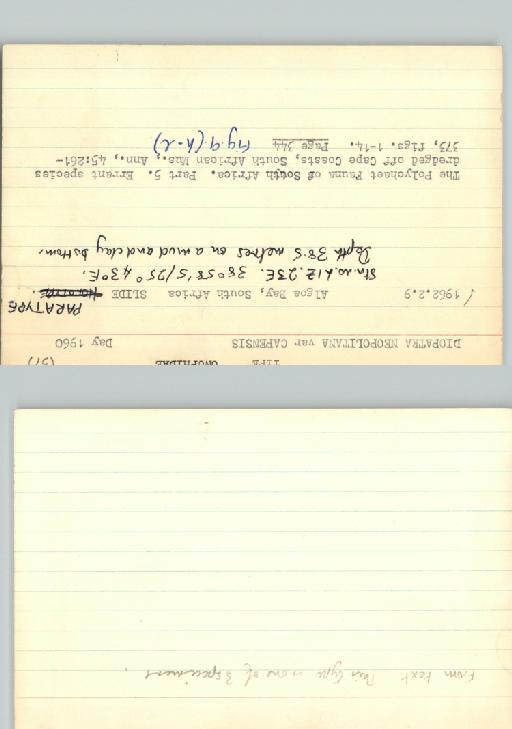 TYPE ONUPHIDAE (57)
DIOPATRA NEOPOLITANA var CAPENSIS Day 1960
1962.2.9 Algoa Bay, South Africa SLIDE
PARATYPE
Stn. no. LIZ. 23E. 38°58'S/25°43'E.
Depth 38.5 metres on a mud and clay bottom.
The Polychaet Fauna of South Africa. Part 5. Errant species
dredged off Cape Coasts, South African Mus., Ann., 45:261-
373, figs. 1-14. Page 344 Fig.9 (k-l)
From text this type is one of 3 specimens.